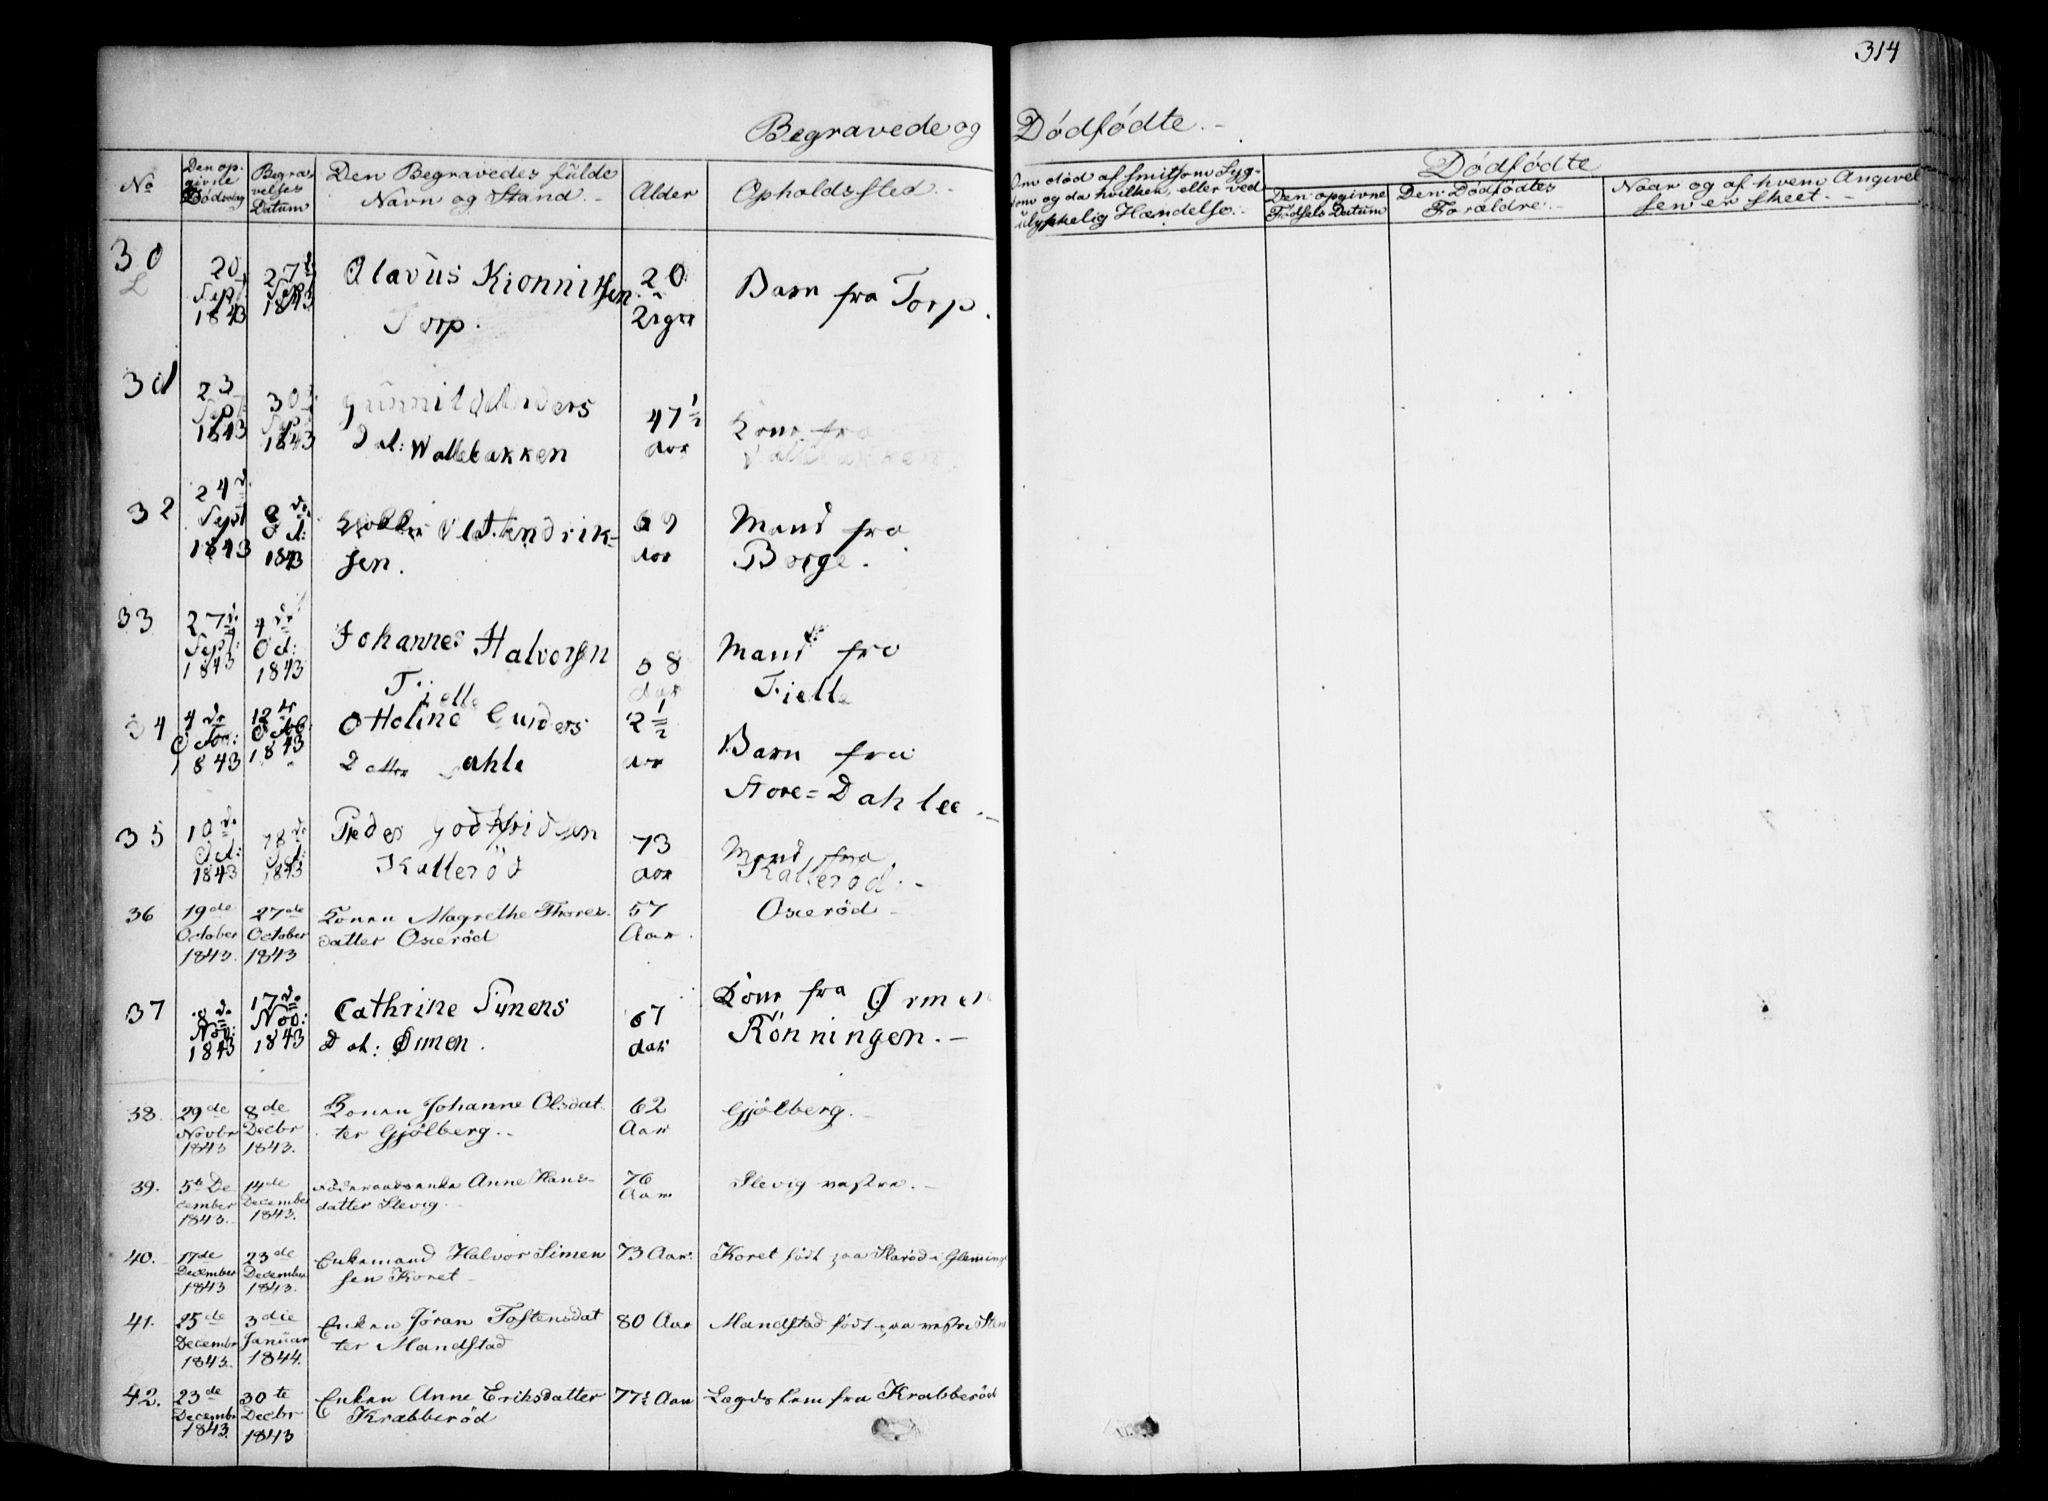 314
Begravede og Dødfødte.
No
Den op-
givne
Dødsdag
Begra-
velses
Datum
Den Begravedes fulde
Navn og Stand.
Alder
Opholdssted.
Om død af smitsom Syg-
dom og da hvilken, eller ved
ulykkelig Hændelse.
Dødfødte
Den opgivne
Fødsels Datum
Den Dødfødtes
Forældre.
Naar og af hvem Angivel
sen er skeet.
30
20
Sept
1843
27
Sept
1843
Olavus
Torp.
20
Barn fra Torp.
31
23
Sept
1843
30
Sept
1843
Gunnild Anders
Dat: Wallebakken
47½
Aar
Kone fra
Vallebakken
32
24de
Sept
1843
Oct:
1843
Hendrik-
sen.
69
Aar
Mand fra
Borge.
33
27de
Sept:
1843
4de
Oct:
1843
Johannes Halvorsen
Fjelle
58
Aar
Mand fra
Fielle
34
4de
Octor:
1843
12te
Octb:
1843
Otteline Gunders
Datter Dahle
2½
Aar
Barn fra
Store=Dahlee.
35
10de
Oct:
1843
18de
Oct:
1843
Peder Godtfridsen
Katteröd
73
Aar
Mand fra
Katteröd.
36
19de
October
1843.
27de
October
1843
Konen Magrethe Thores-
datter Oxerød
57
Aar.
Oxerød
37
8de
Nov:
1843
17de
Nov:
1843
Cathrine Symens
Dat: Ømen.
67
Aar
Kone fra Ørmen
Rönningen.
38.
29de
Novbr
1843
8de
Decbr
1843.
Konen Johanne Olsdat
ter Gjölberg.
62
Aar
Gjölberg.
39.
5te De
cember
1843.
14de
December
1843.
Föderaadsenke Anne Hans-
datter Slevig
76
Aar
Slevig vestre.
40.
17de
December
1843
23de
December
1843.
Enkemand Halvor Simen
sen Koret
73 Aar.
Koret født paa i Glemminge
41.
25de
Decembr
1843.
3die
Januar
1844.
Enken Jöran Tostensdat
ter Mandstad
80 Aar
Mandstad født paa vestre
42.
23de
Decembr
1843.
30te
Decbr
1843
Enken Anne Eriksdatter
Krabberød
77½ Aar
Lægdslem fra Krabberød